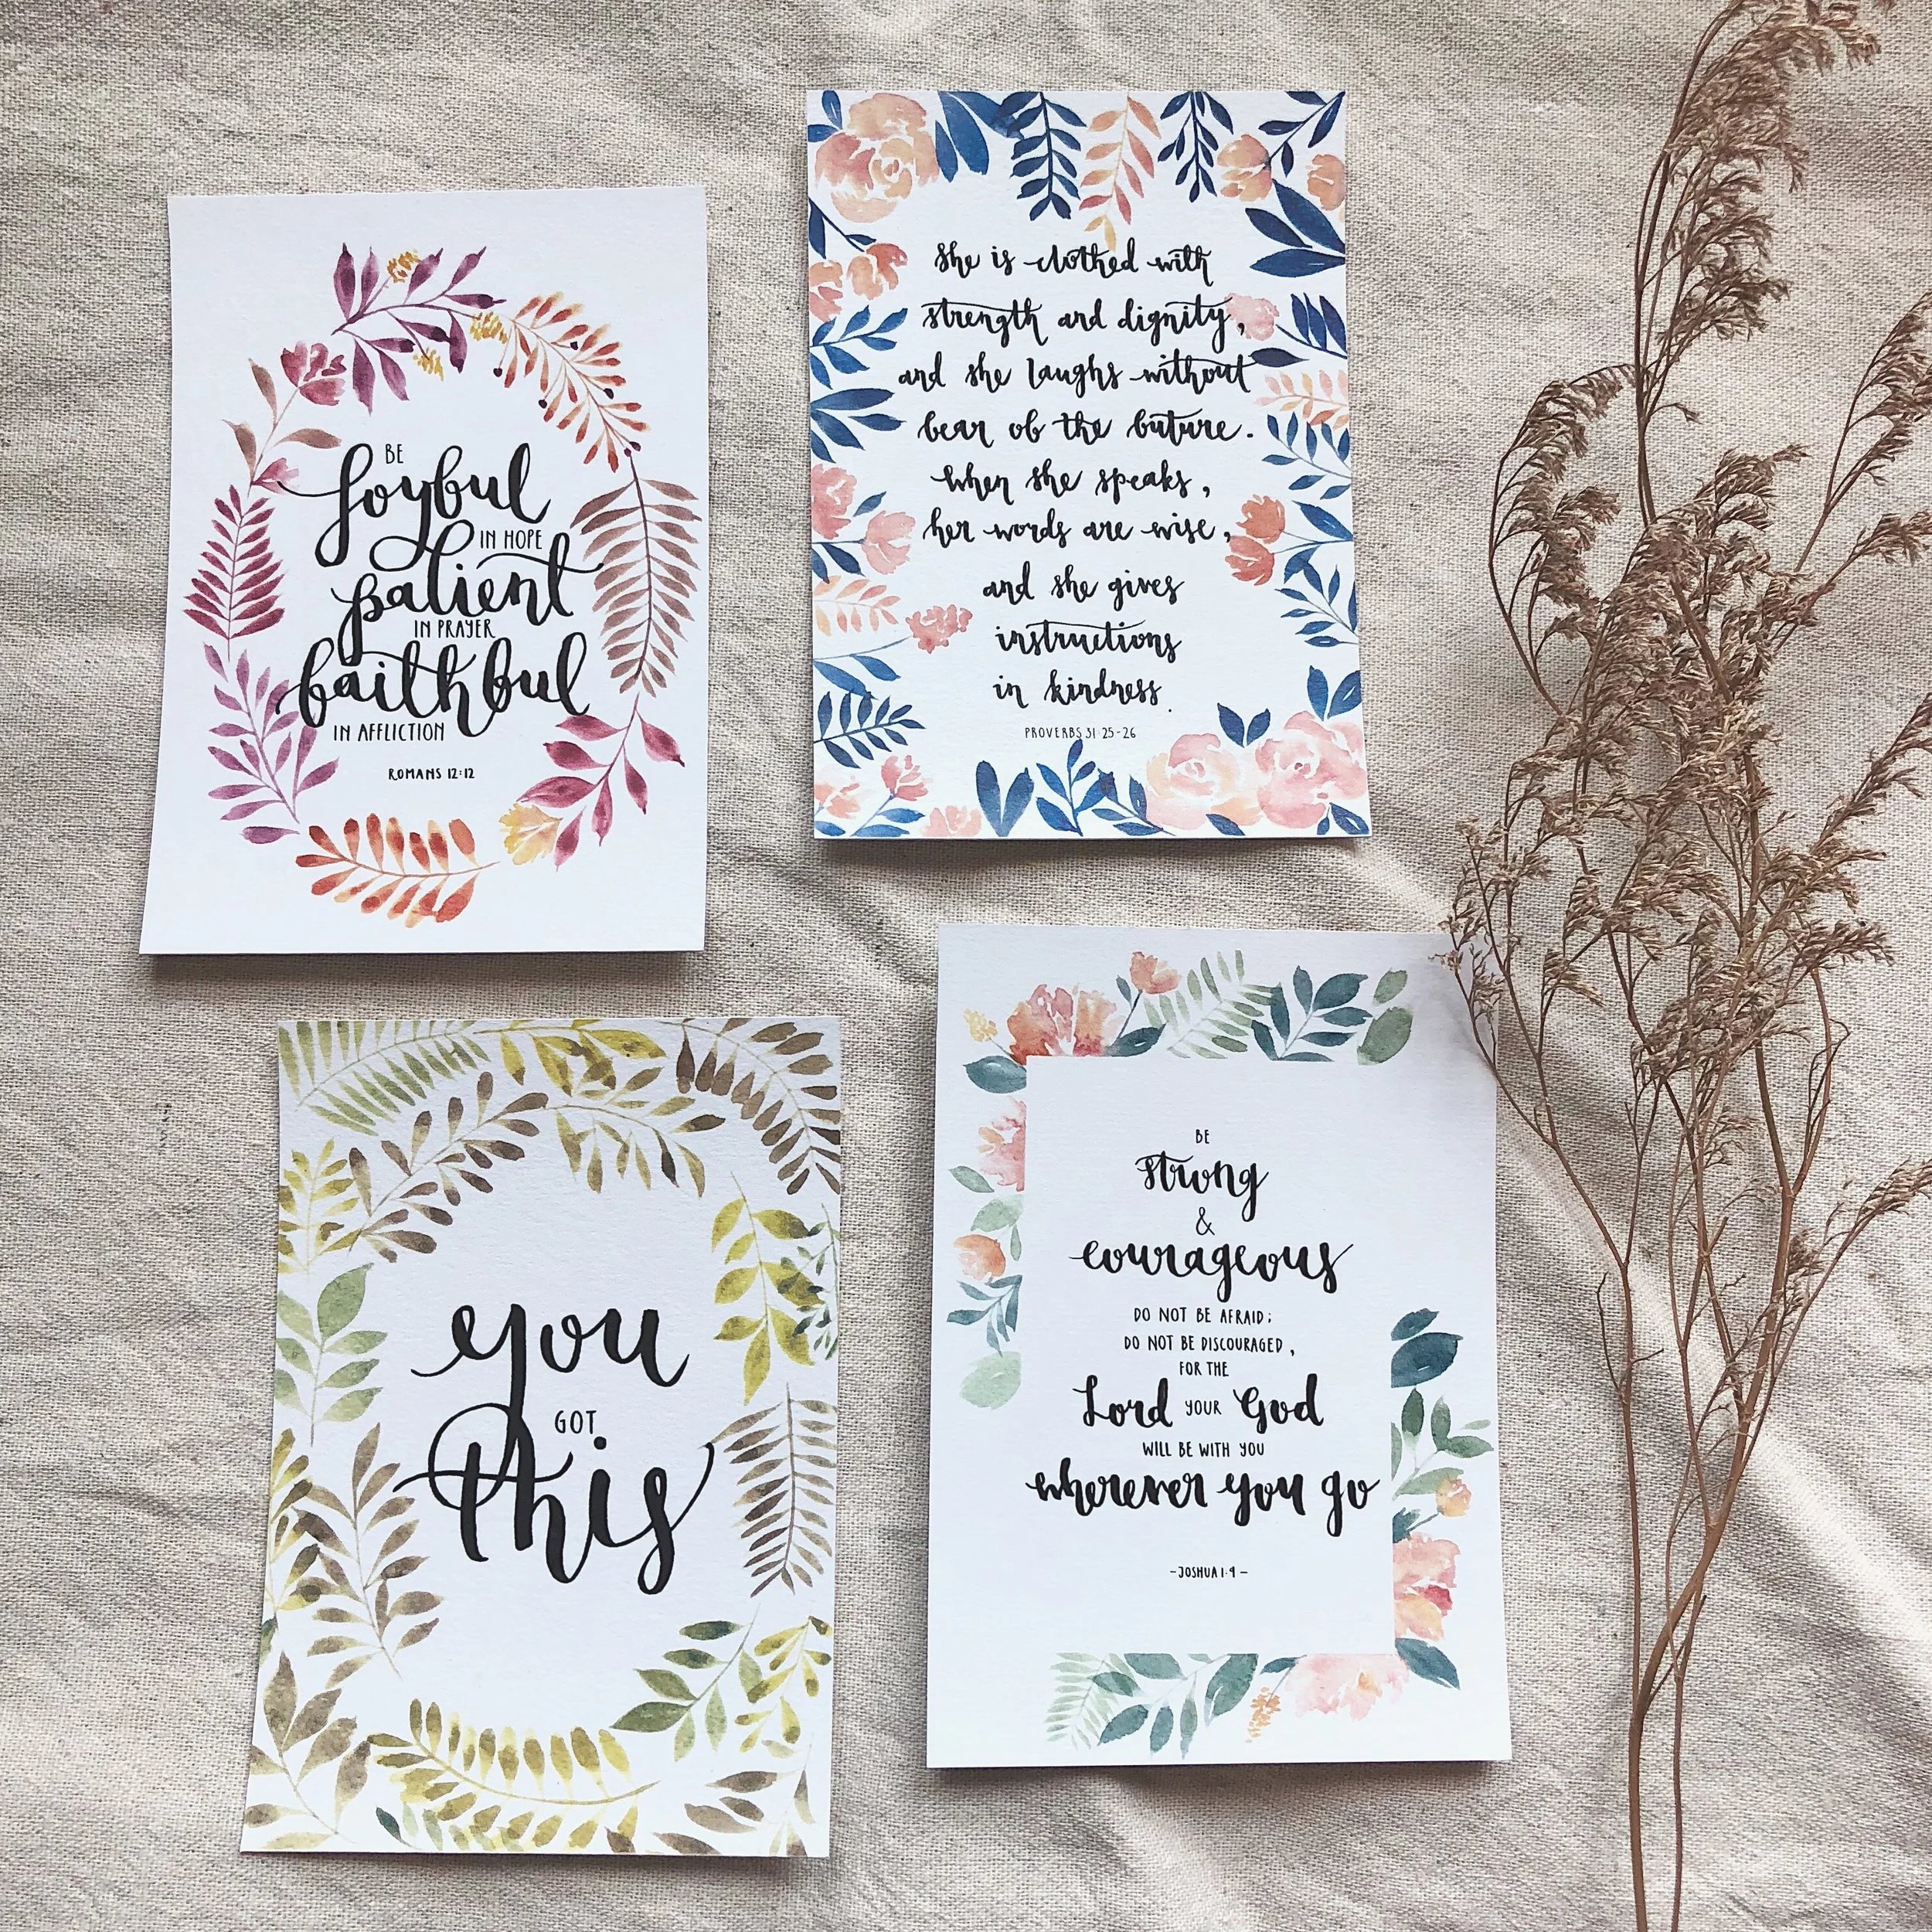 BE
Joyful
IN HOPE
patient
IN PRAYER
faithful
IN AFFLICTION
ROMANS 12:12
she is clothed with
strength and dignity,
and she laughs without
fear of the future.
when she speaks,
her words are wise,
and she gives
instructions
in kindness.
PROVERBS 31:25-26
you
GOT
this
BE
strong
&
courageous
DO NOT BE AFRAID;
DO NOT BE DISCOURAGED,
FOR THE
Lord YOUR God
WILL BE WITH YOU
wherever you go
-JOSHUA 1:9-